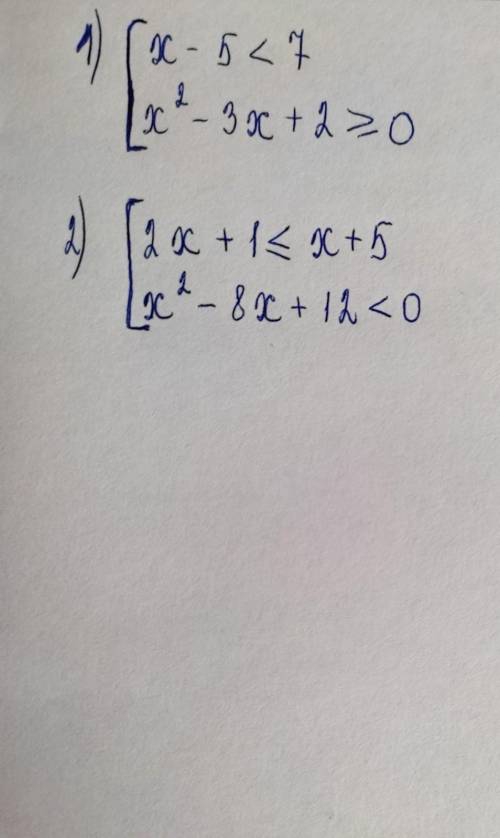 1) [ x - 5 < 7
x² - 3x + 2 ⩾ 0
2) [ 2x + 1 ⩽ x + 5
x² - 8x + 12 < 0